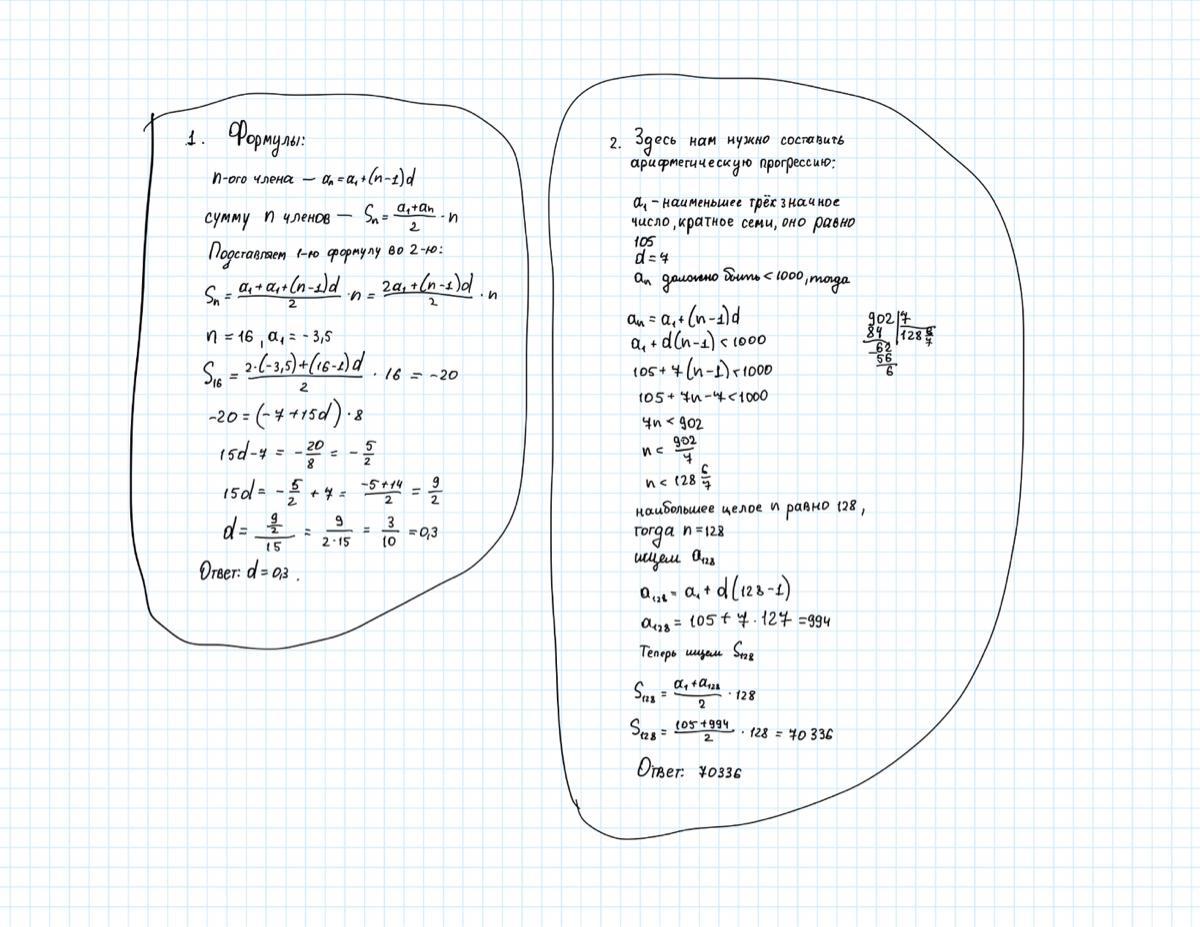 1. Формулы:
n-ого члена — aₙ = a₁ + (n-1)d
сумму n членов — Sₙ = (a₁+aₙ)/2 · n
Подставляем 1-ю формулу во 2-ю:
Sₙ = (a₁+a₁+(n-1)d)/2 · n = (2a₁+(n-1)d)/2 · n
n = 16, a₁ = -3,5
S₁₆ = (2·(-3,5)+(16-1)d)/2 · 16 = -20
-20 = (-7+15d)·8
15d-7 = -20/8 = -5/2
15d = -5/2 + 7 = (-5+14)/2 = 9/2
d = (9/2)/15 = 9/(2·15) = 3/10 = 0,3
Ответ: d = 0,3.
2. Здесь нам нужно составить
арифметическую прогрессию:
a₁ - наименьшее трёхзначное
число, кратное семи, оно равно
105
d = 7
aₙ должно быть < 1000, тогда
aₙ = a₁ + (n-1)d
a₁ + d(n-1) < 1000
105 + 7(n-1) < 1000
105 + 7n - 7 < 1000
7n < 902
n < 902/7
n < 128 6/7
наибольшее целое n равно 128,
тогда n = 128
ищем a₁₂₈
a₁₂₈ = a₁ + d(128-1)
a₁₂₈ = 105 + 7·127 = 994
Теперь ищем S₁₂₈
S₁₂₈ = (a₁+a₁₂₈)/2 · 128
S₁₂₈ = (105+994)/2 · 128 = 70 336
Ответ: 70336
902|7
84 |128 6/7
-62
56
6